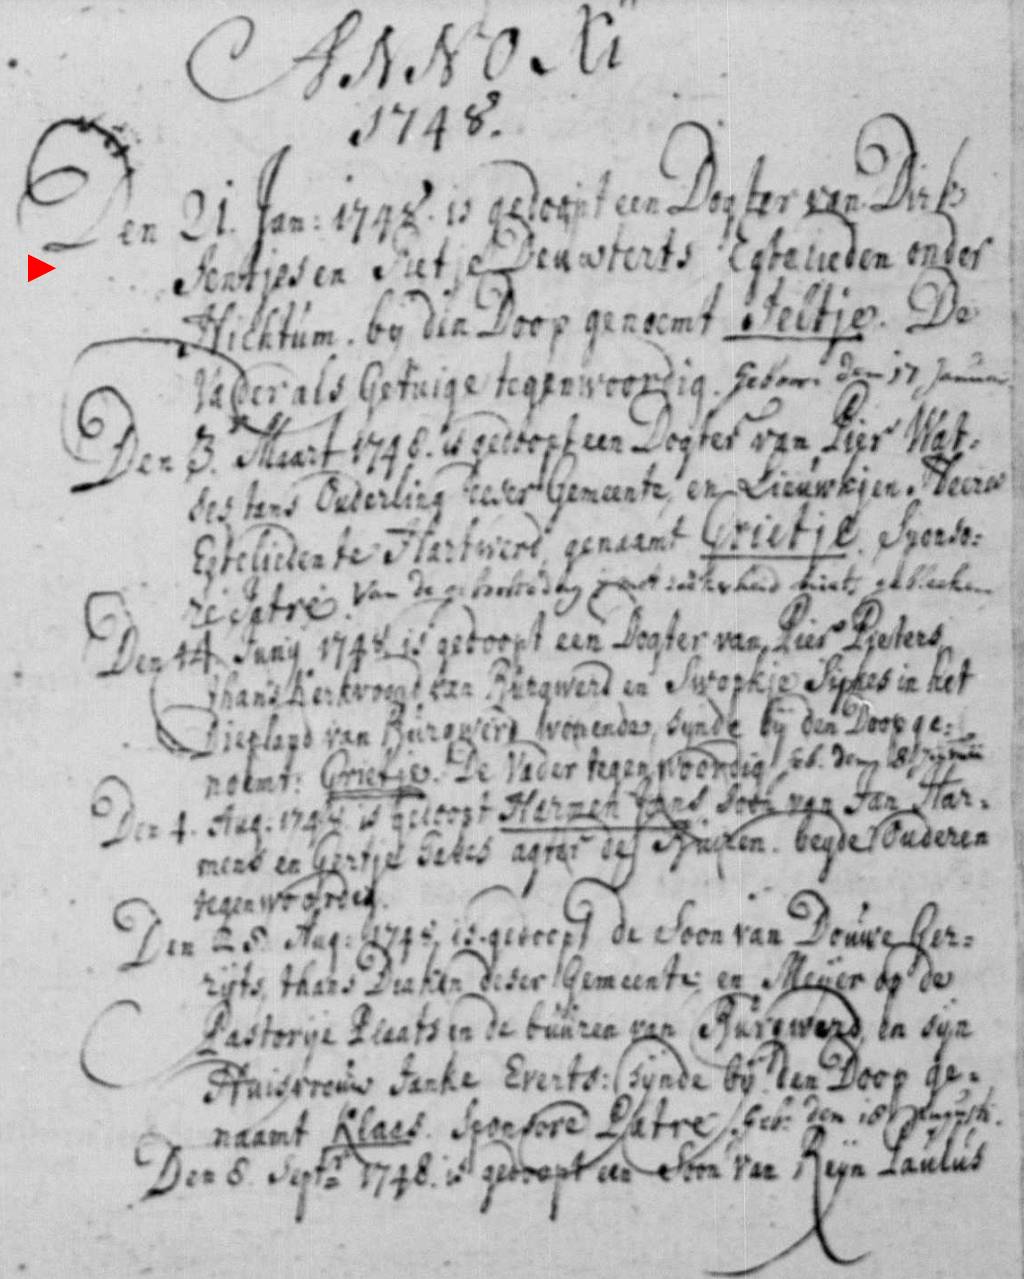 ANNO XI
1748.
Den 21. Jan: 1748. is gedoopt een Dogter van Dirk
Jentjes en Sietje Deuwterts Egtelieden onder
Hichtum. bij den Doop genoemt Jeltje. De
Vader als Getuige tegenwoordig. Gebooren den 17 Januari
Den 3. Maart 1748. is gedoopt een Dogter van Pier Wat-
ses tans Ouderling deser Gemeente, en Lieuwkjen Heeres
Egtelieden te Hartwerd, genaamt Grietje. Sponso-
re Patre. Van de geboortedag met sekerheid niets gebleeken
Den 14 Junij 1748. is gedoopt een Dogter van Pier Pieters,
thans Kerkvoogd van Burgwerd en Swopkje Sipkes in het
Diepland van Burgwerd wonende, synde bij den Doop ge-
noemt: Grietje. De Vader tegenwoordig geb. den 8
Den 4. Aug: 1748. is gedoopt Harmen Jans soon van Jan Har-
mens en Gertje agter de Huisen. beyde Ouderen
tegenwoordig.
Den 25. Aug: 1748, is gedoopt de Soon van Douwe Ger-
rijts, thans Diaken deser Gemeente en Meijer op de
Pastorije Plaats in de buuren van Burgwerd, en syn
Huisvrouw Janke Everts: synde bij den Doop ge-
naamt Klaas. Sponsore Patre. Geb: den 18 Augusti.
Den 8. Septr 1748. is gedoopt een Soon van Reijn Paulus